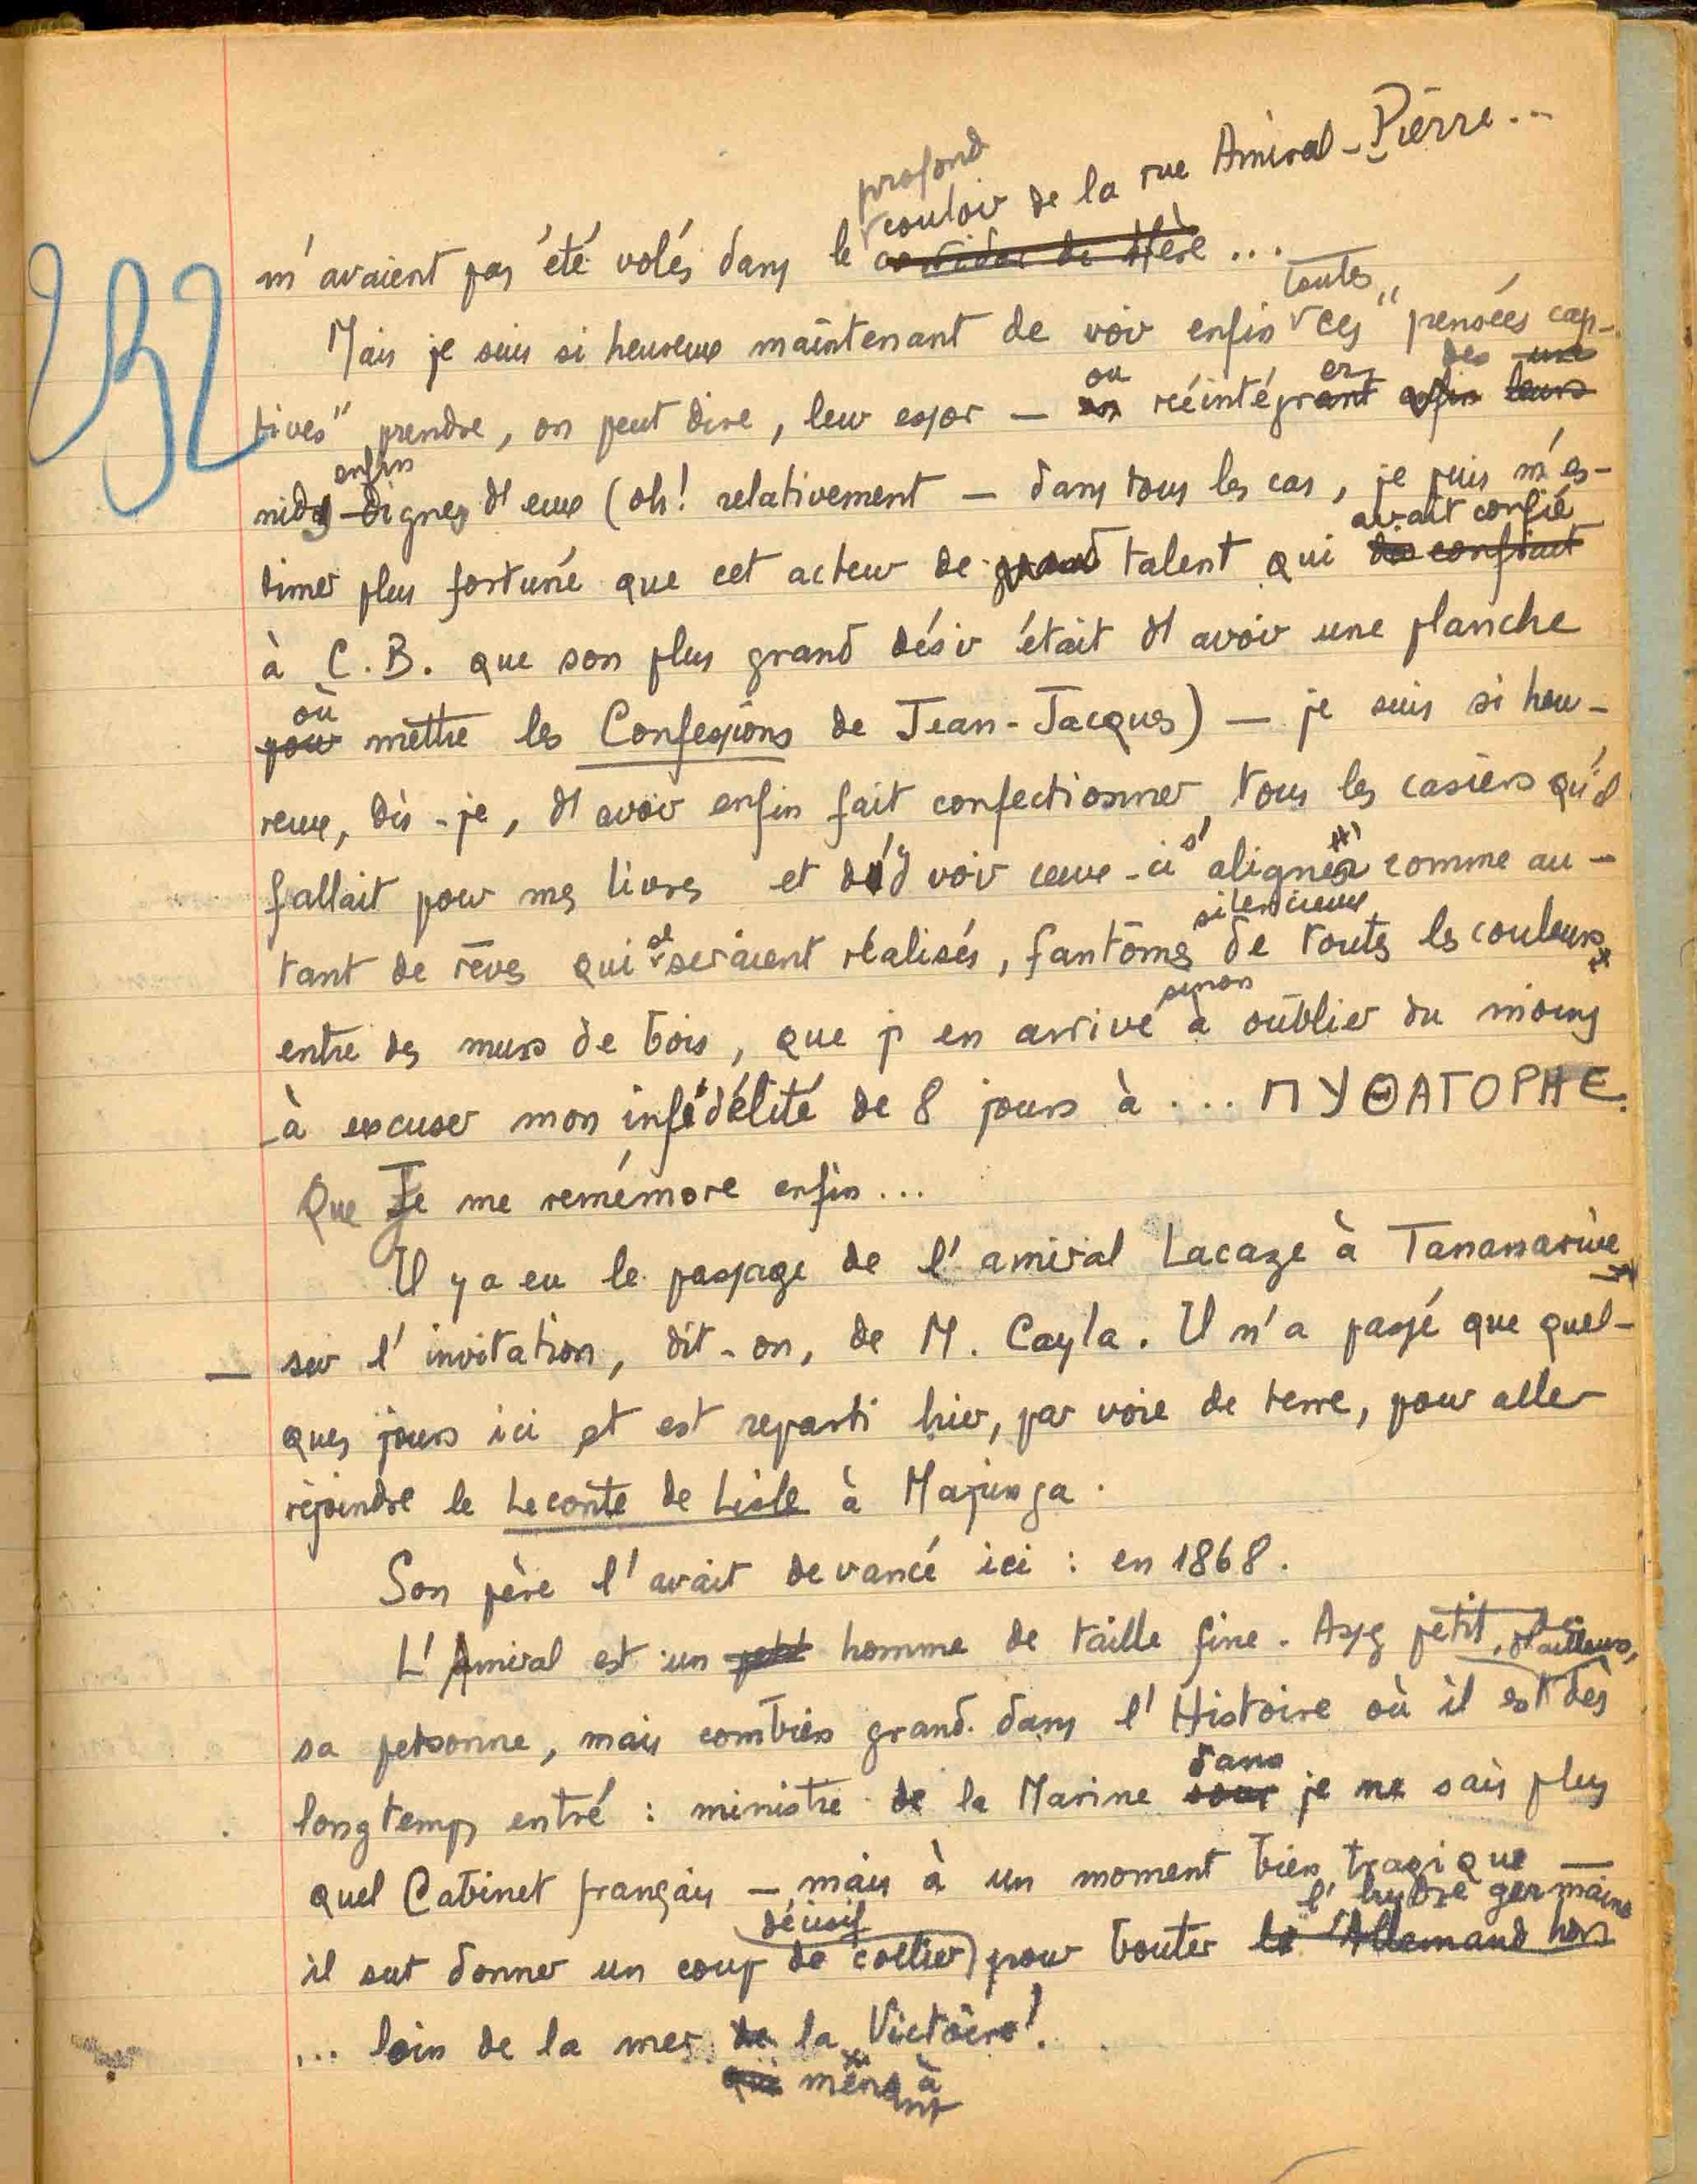 232
profond
couloir de la rue Amiral-Pierre...
m'avaient pas été volés dans le corridor de Hère ...
toutes
Mais je suis si heureux maintenant de voir enfin ces "pensées cap-
ou er des une
tives" prendre, on peut dire, leur essor — en réintégrant enfin leurs
enfin
nids dignes d'eux (oh! relativement — dans tous les cas, je puis m'es-
avait confié
timer plus fortuné que cet acteur de grand talent qui confiait
à C.B. que son plus grand désir était d'avoir une planche
où
pour mettre les Confessions de Jean-Jacques) — je suis si heu-
reux, dis-je, d'avoir enfin fait confectionner tous les casiers qu'il
fallait pour mes livres et d'y voir ceux-ci s'aligner comme au-
silencieux
tant de rêves qui se seraient réalisés, fantômes de toutes les couleurs
sinon
entre des murs de bois, que j'en arrive à oublier du moins
à excuser mon infidélité de 8 jours à ... ΠΥΘΑΓΟΡΗΕ.
Que Je me remémore enfin...
Il y a eu le passage de l'amiral Lacaze à Tananarive
— sur l'invitation, dit-on, de M. Cayla. Il n'a passé que quel-
ques jours ici et est reparti hier, par voie de terre, pour aller
rejoindre le Leconte de Lisle à Majunga.
Son père l'avait devancé ici : en 1868.
L'Amiral est un petit homme de taille fine. Assez petit, d'ailleurs, de
sa personne, mais combien grand dans l'Histoire où il est dès
dans
longtemps entré : ministre de la Marine sous je ne sais plus
quel Cabinet français — mais à un moment bien tragique —
décisif l'hydre germaine
il sut donner un coup de collier pour bouter le l'Allemand hors
... loin de la mer de la Victoire!
qui menant à